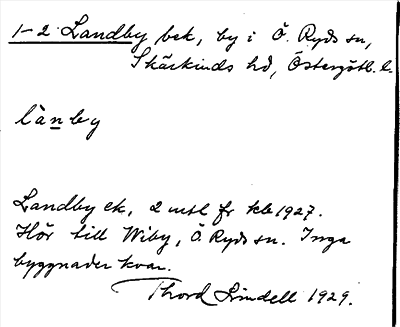 1-2 Landby bek, by i Ö. Ryds sn,
Skärkinds hd, Östergötl. l.
lànby
Landby ek, 2 mtl fr kb 1927.
Hör till Wiby, Ö Ryds sn. Inga
byggnader kvar.
Thord Lindell 1929.